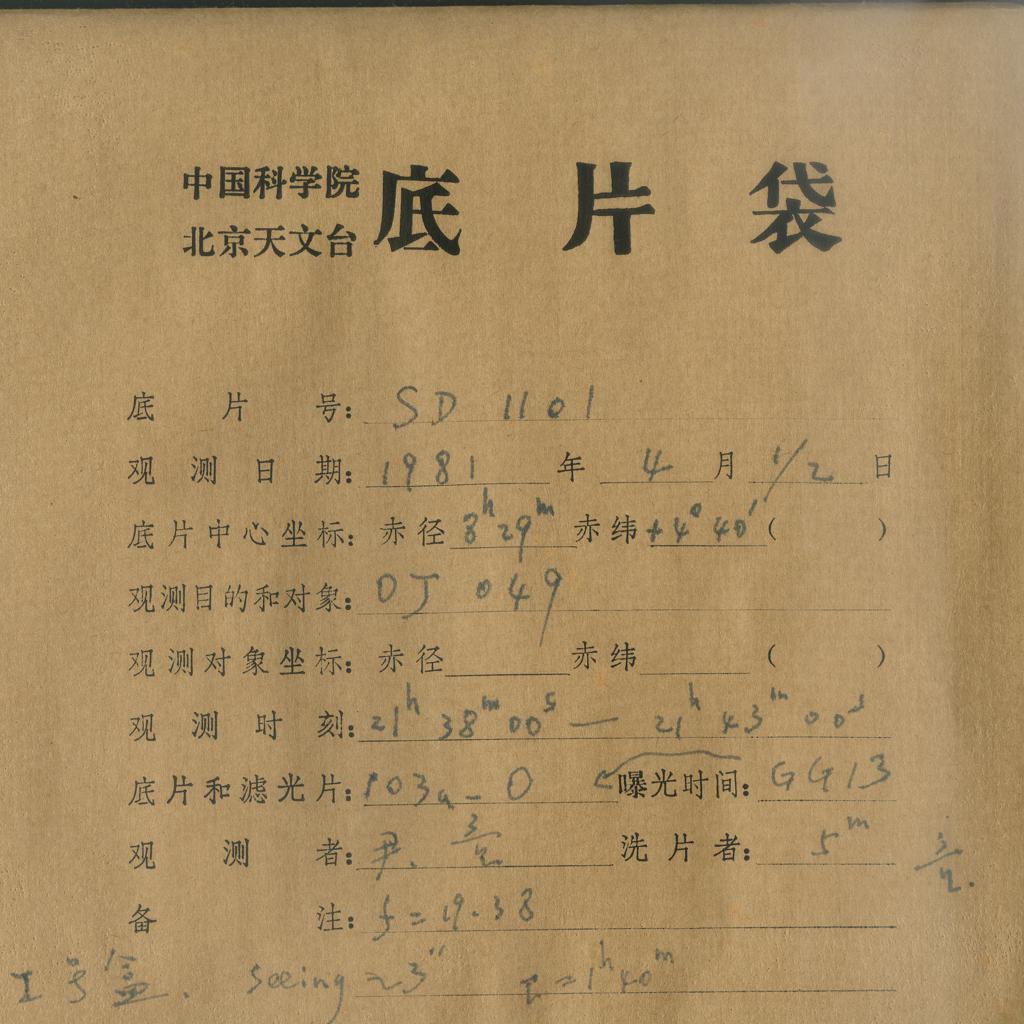 中国科学院
北京天文台
底片袋
底片号: SD 1101
观测日期: 1981 年 4 月 1/2 日
底片中心坐标: 赤径 8h 29m 赤纬 +4° 40' ( )
观测目的和对象: OJ 049
观测对象坐标: 赤径 赤纬 ( )
观测时刻: 21h 38m 00s — 21h 43m 00s
底片和滤光片: 103a-O 曝光时间: GG13
观测者: 尹. 洗片者: 5m
备注: f = 19.38
I号盒. Seeing ~3" t = 1h 40m